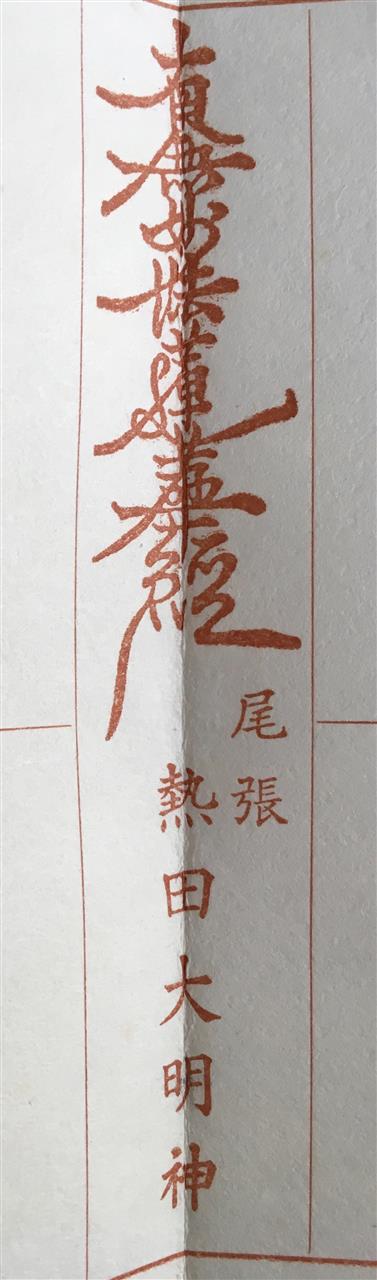 南無妙法蓮華經
尾張
熱田大明神